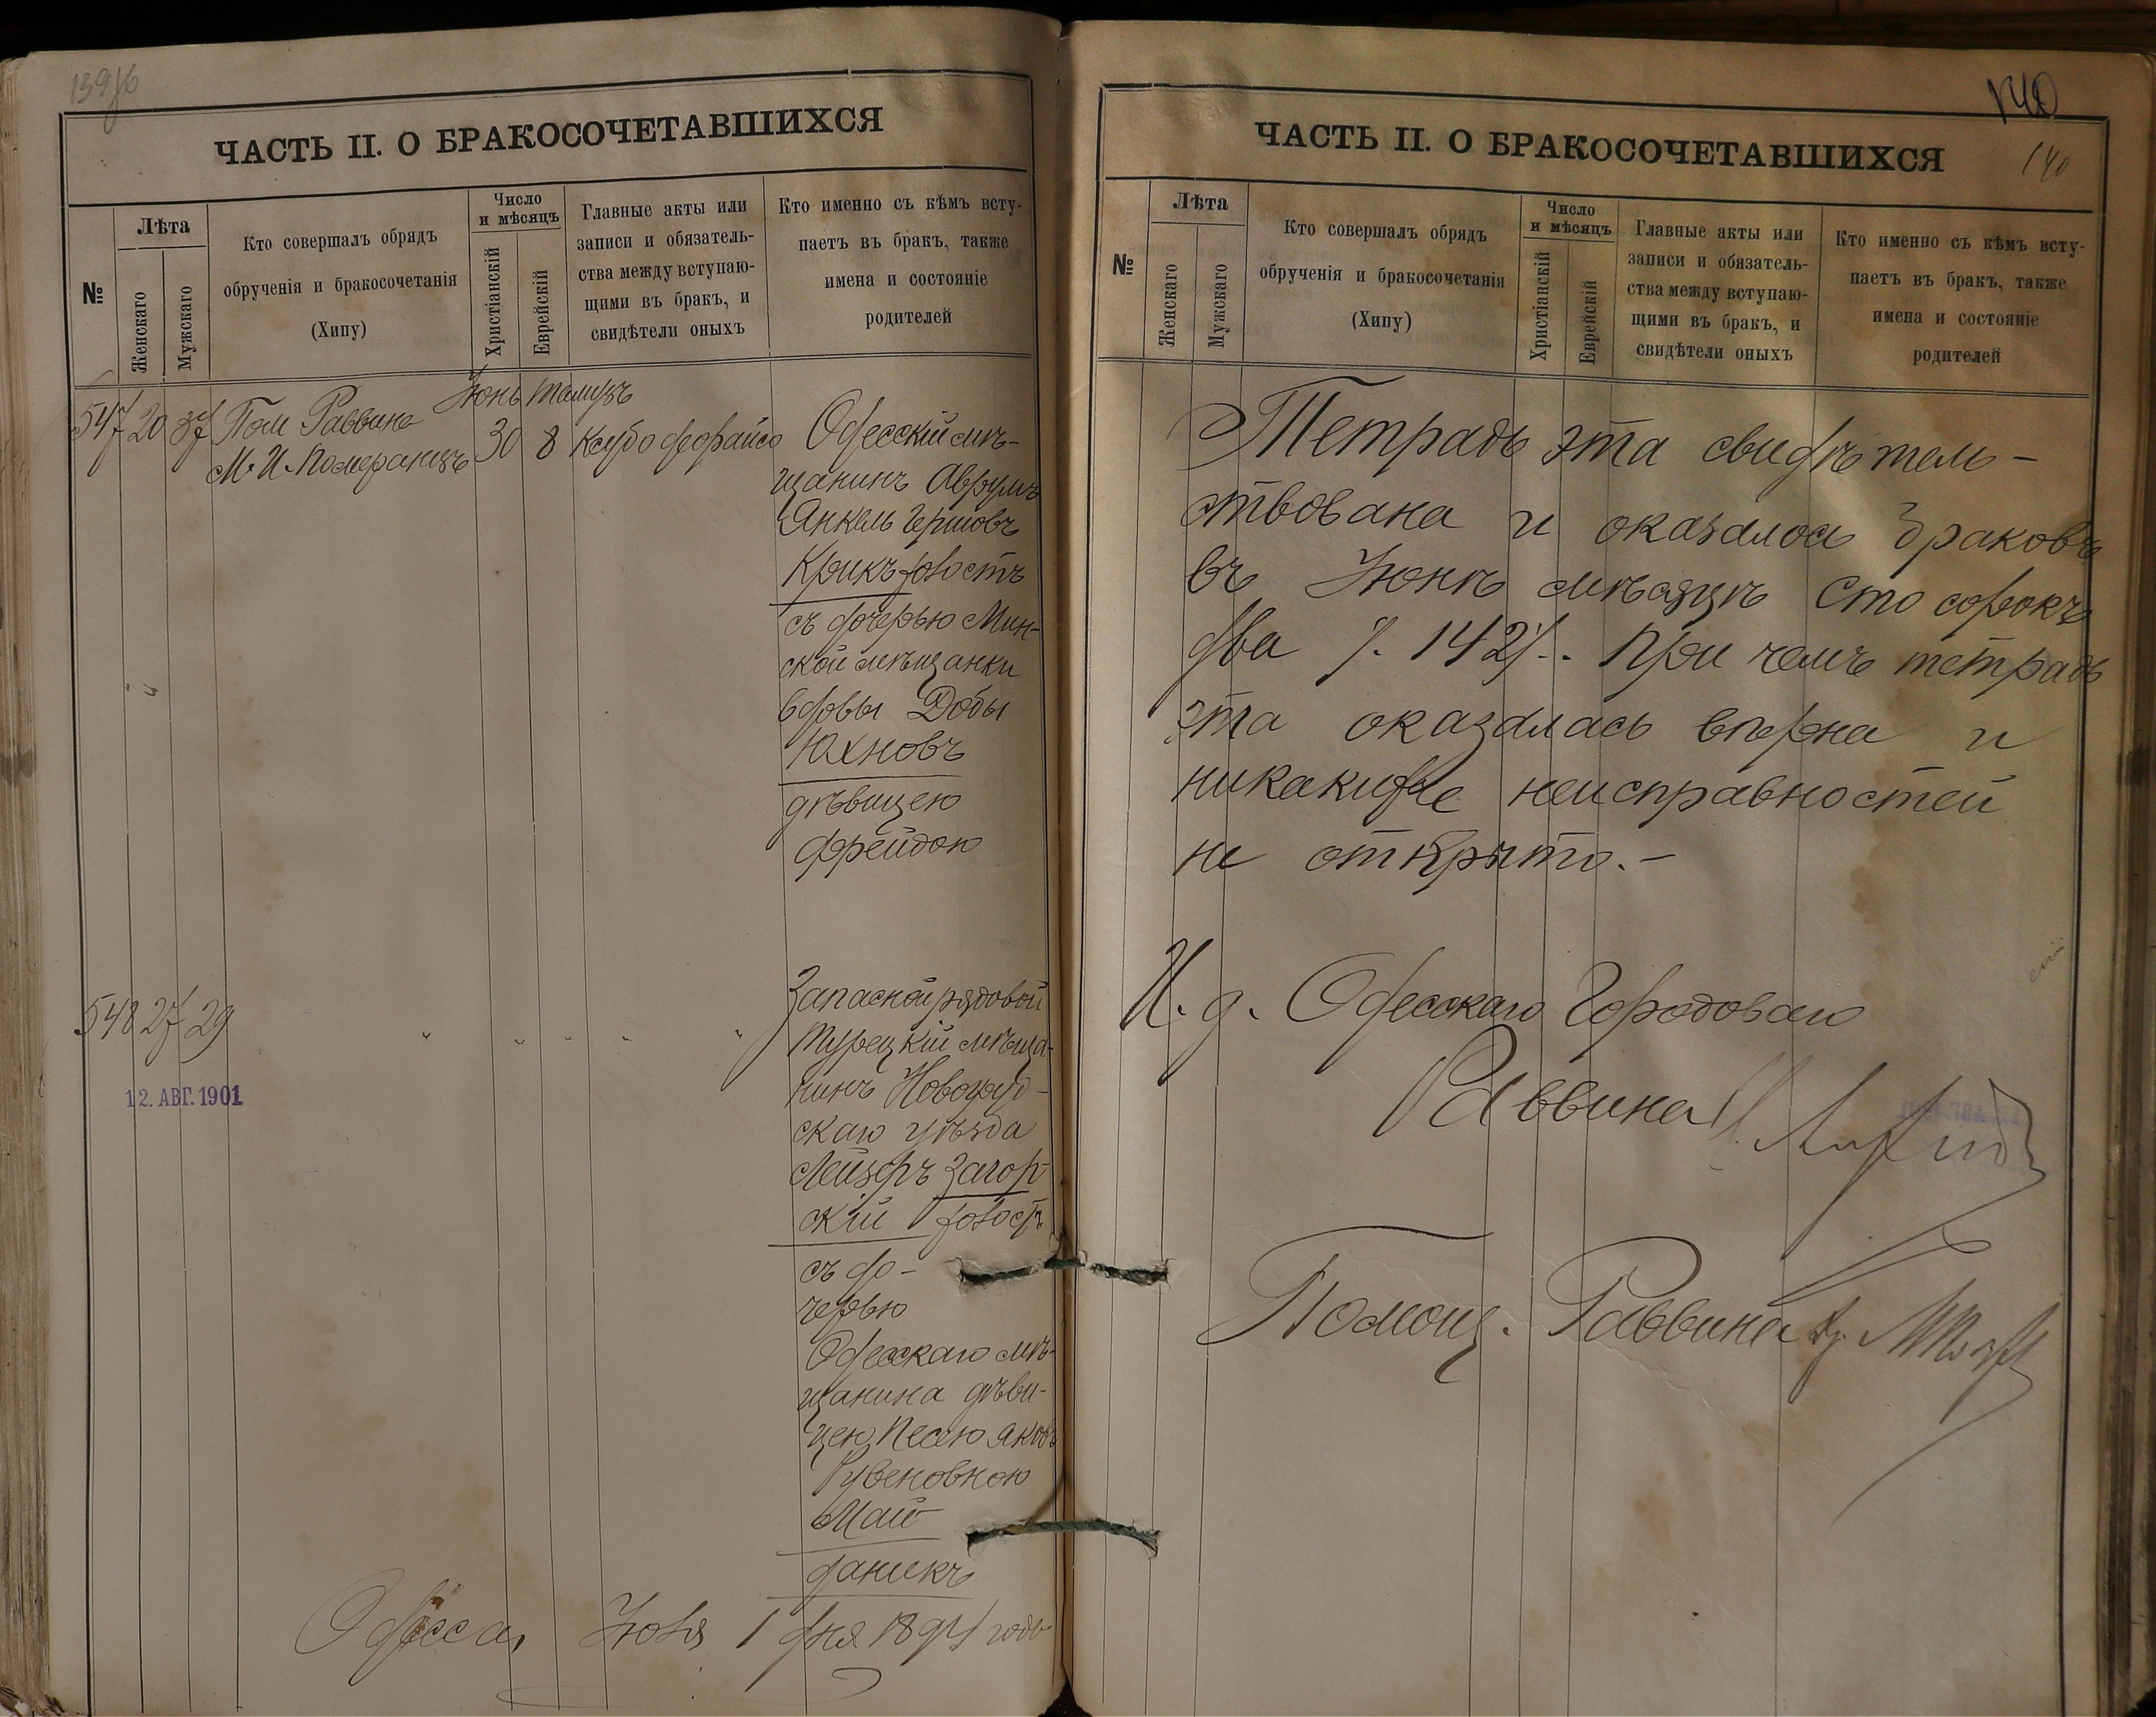 139
ЧАСТЬ II. О БРАКОСОЧЕТАВШИХСЯ
№
Лѣта
Женскаго
Мужскаго
Кто совершалъ обрядъ
обрученія и бракосочетанія
(Хипу)
Число
и мѣсяцъ
Христіанскій
Еврейскій
Главные акты или
записи и обязатель-
ства между вступаю-
щими въ бракъ, и
свидѣтели оныхъ
Кто именно съ кѣмъ всту-
паетъ въ бракъ, также
имена и состояніе
родителей
Іюнь Тамузъ
547 20 37 Пом Раввина
М. И. Померанцъ
30 8
Одесскій мѣ-
щанинъ Аврумъ
Янкель Гершовъ
Крикъ холостъ
съ дочерью Мин-
ской мѣщанки
вдовы Добы
Юхновъ
дѣвицею
Фрейдою
548 27 29 " " " " "
12. АВГ. 1901
Запасной рядовой
Турецкій мѣща-
нинъ
скаго уѣзда
Лейзеръ Загор-
скій холостъ
съ до-
черью
Одесскаго мѣ-
щанина дѣви-
цею Песею Яковъ
Рувеновною
Май-
даникъ
Одесса, Іюля 1 дня года
140
ЧАСТЬ II. О БРАКОСОЧЕТАВШИХСЯ
140
№
Лѣта
Женскаго
Мужскаго
Кто совершалъ обрядъ
обрученія и бракосочетанія
(Хипу)
Число
и мѣсяцъ
Христіанскій
Еврейскій
Главные акты или
записи и обязатель-
ства между вступаю-
щими въ бракъ, и
свидѣтели оныхъ
Кто именно съ кѣмъ всту-
паетъ въ бракъ, также
имена и состояніе
родителей
Тетрадь эта свидѣтель-
ствована и оказалось браковъ
въ Іюнѣ мѣсяцѣ сто сорокъ
два /. 142/.. При чемъ тетрадь
эта оказалась вѣрна и
никакихъ неисправностей
не открыто.-
И. д. Одесскаго Городоваго
Раввина
Помощ. Раввина